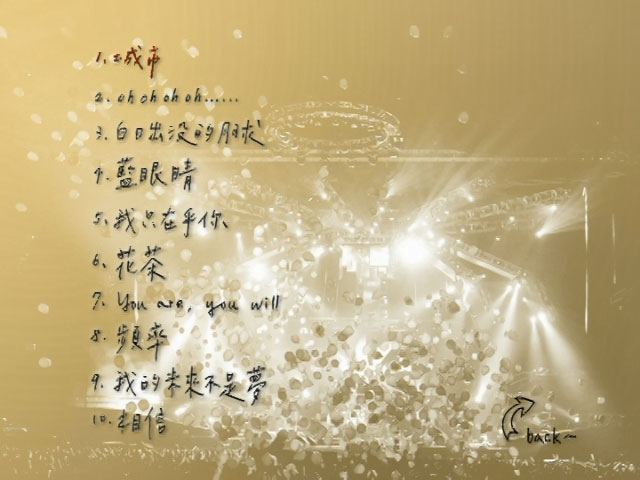 1. 城市
2. oh oh oh oh......
3. 白日出沒的月球
4. 藍眼睛
5. 我只在乎你
6. 花茶
7. You are, you will
8. 頻率
9. 我的未來不是夢
10. 相信
back~